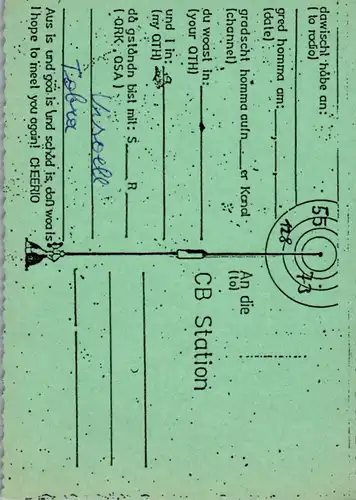 dawischt håbe an:
(to radio)
gred homma am:
(date)
gradscht homma aufn er Kanal
(channel)
du woast in:
(your QTH)
und I in:
(my QTH)
då gståndn bist mit: S R
(-QRK, QSA)
Aus is und goa is und schod is, daß woa is!
I hope to meet you again! CHEERIO
55
128
73
An die
(to)
CB Station